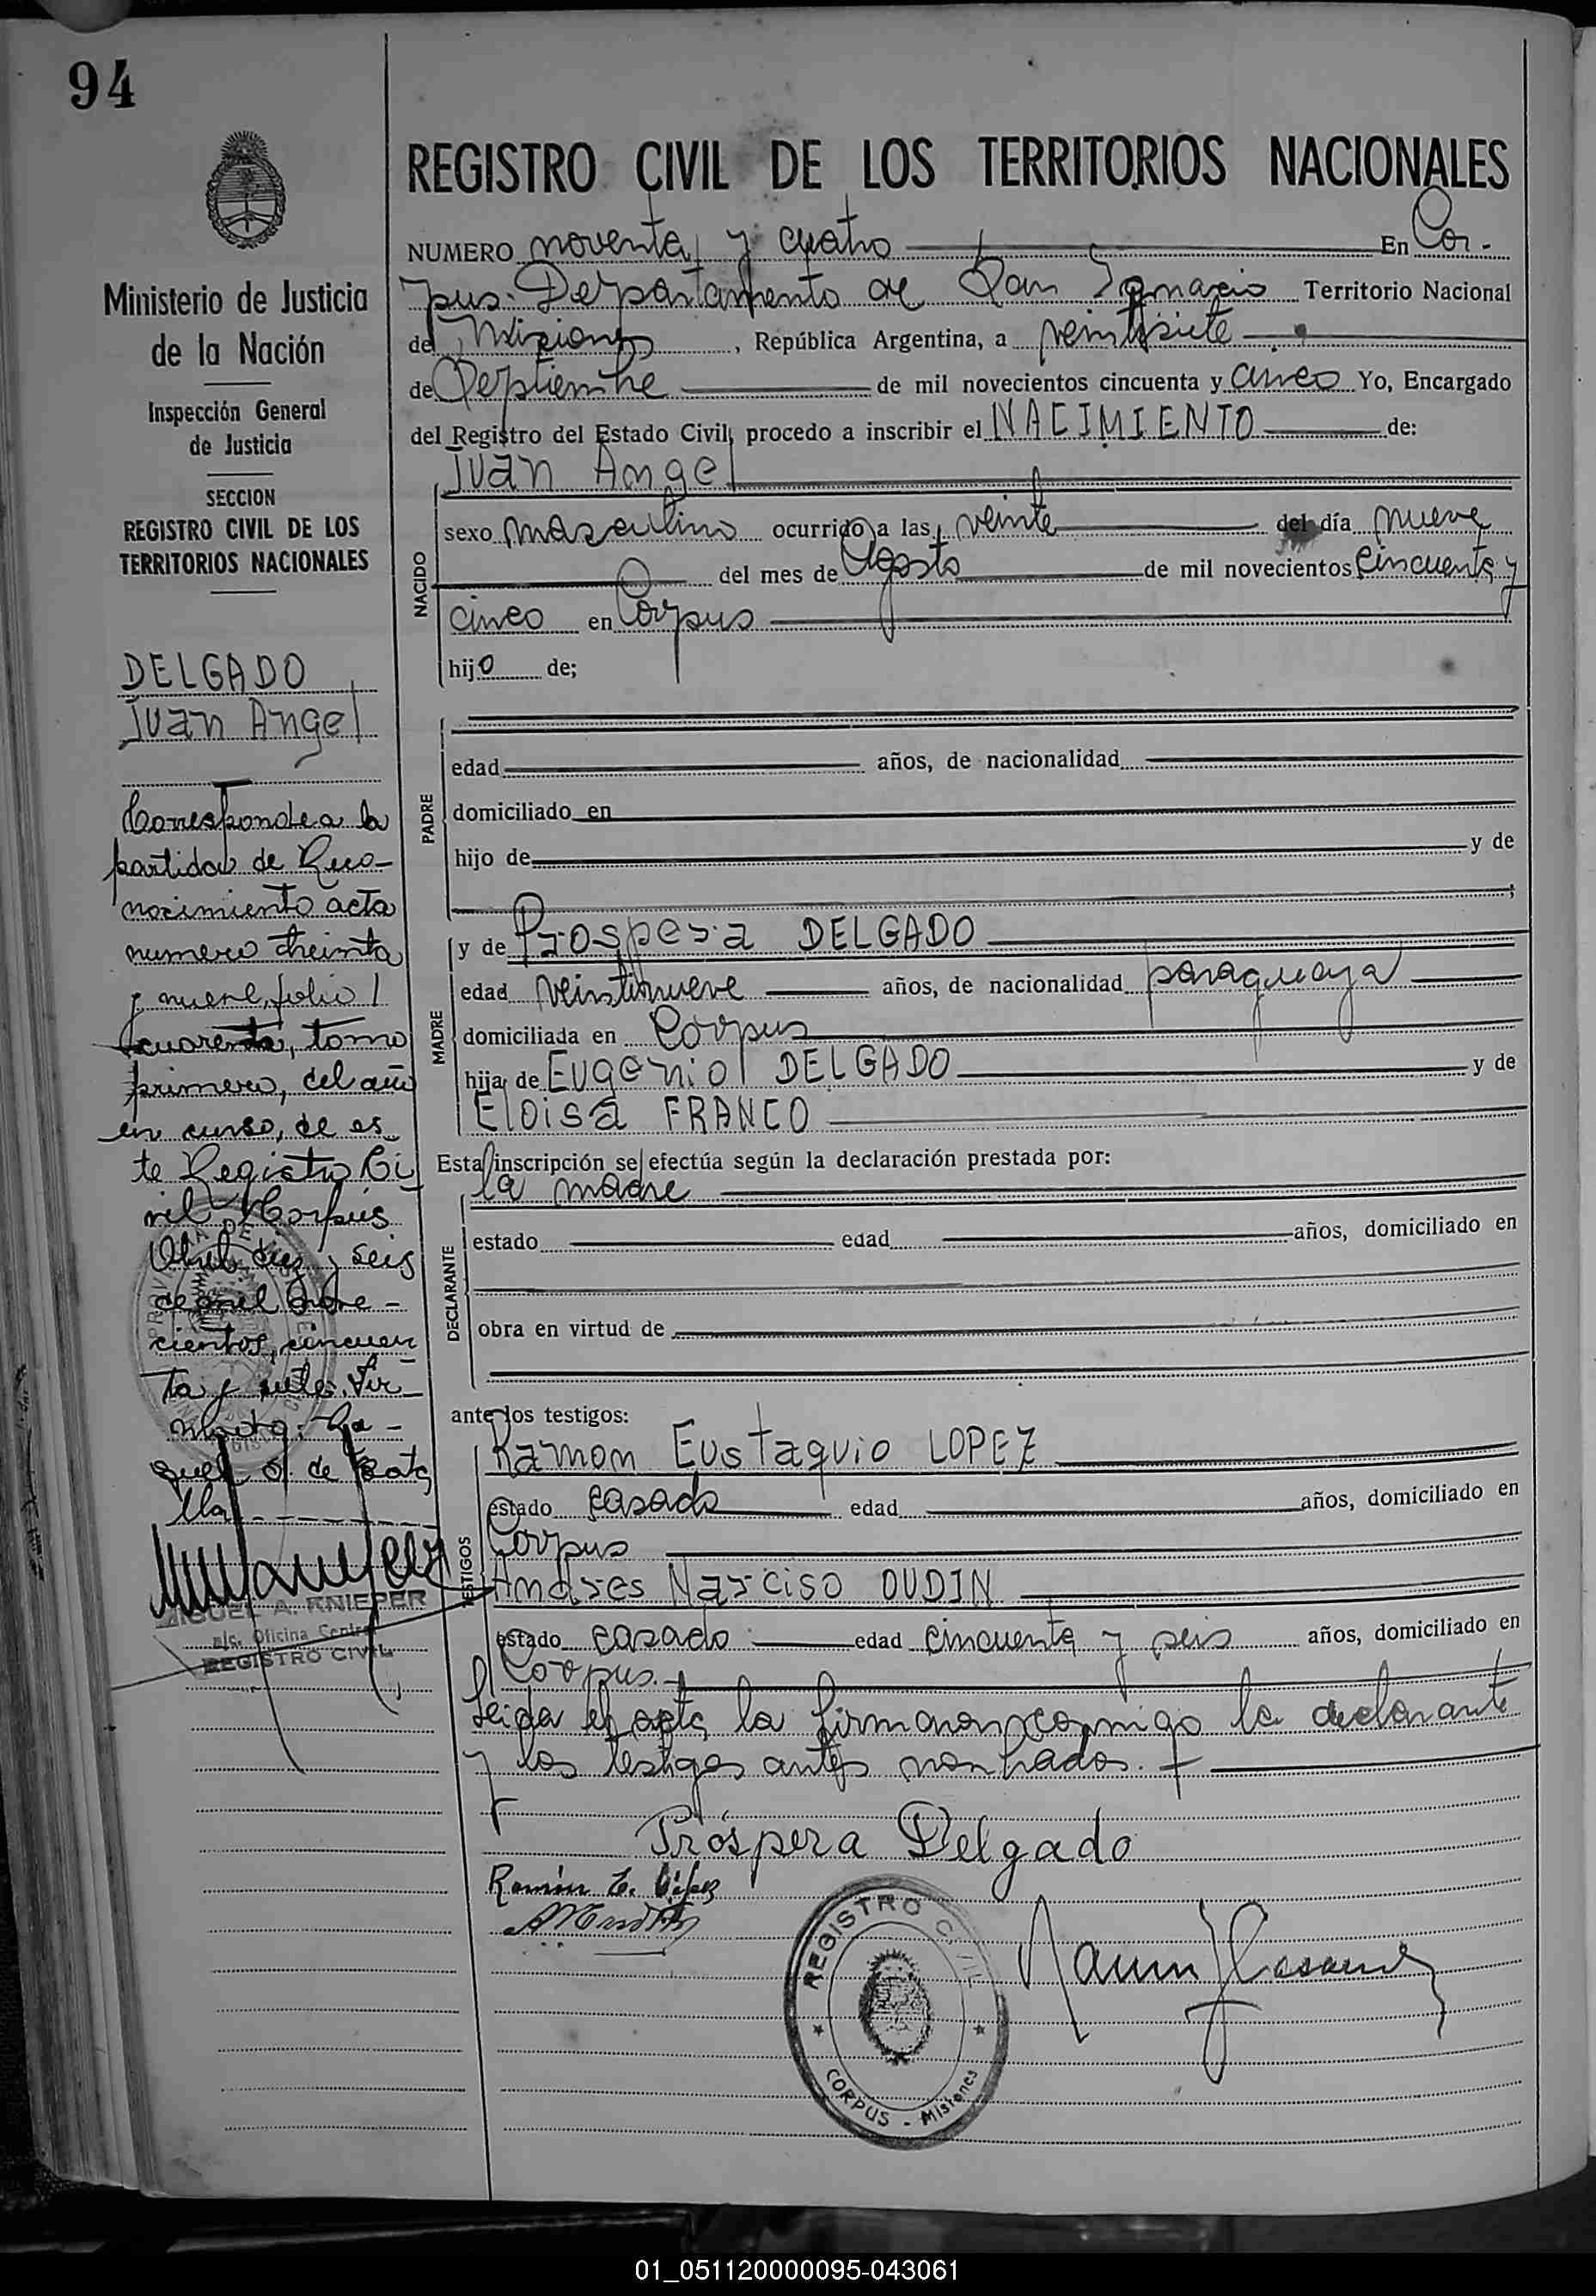 94
Ministerio de Justicia
de la Nación
Inspección General
de Justicia
SECCION
REGISTRO CIVIL DE LOS
TERRITORIOS NACIONALES
DELGADO
Juan Angel
Corresponde a la
partida de Reco-
nocimiento acta
numero treinta
y nueve, folio
cuarenta, tomo
primero, del año
en curso, de es-
te Registro Ci
vil Corpus
Abril diez y seis
de mil nove-
cientos, cincuen
ta y siete. Fir
mado:
de
MIGUEL A. KNIEPER
a/c. Oficina Central
REGISTRO CIVIL
REGISTRO CIVIL DE LOS TERRITORIOS NACIONALES
NUMERO noventa y cuatro En Cor-
pus. Departamento de San Ignacio Territorio Nacional
de Misiones, República Argentina, a veintisiete
de Septiembre de mil novecientos cincuenta y cinco Yo, Encargado
del Registro del Estado Civil, procedo a inscribir el NACIMIENTO de:
Juan Angel
NACIDO
sexo masculino ocurrido a las veinte del día nueve
del mes de Agosto de mil novecientos cincuenta y
cinco en Corpus
hijo de;
PADRE
edad años, de nacionalidad
domiciliado en
hijo de y de
;
MADRE
y de Prospera DELGADO
edad veintinueve años, de nacionalidad paraguaya
domiciliada en Corpus
hija de Eugenio DELGADO y de
Eloisa FRANCO
Esta inscripción se efectúa según la declaración prestada por:
la madre
DECLARANTE
estado edad años, domiciliado en
obra en virtud de
ante los testigos:
TESTIGOS
Ramon Eustaquio LOPEZ
estado casado edad años, domiciliado en
Corpus
Andres Narciso OUDIN
estado casado edad cincuenta y seis años, domiciliado en
Corpus.
Leida el acta la firmaron conmigo la declarante
y los testigos antes nombrados.
Próspera Delgado
Ramón E. López
REGISTRO CIVIL
CORPUS - Misiones
01_051120000095-043061